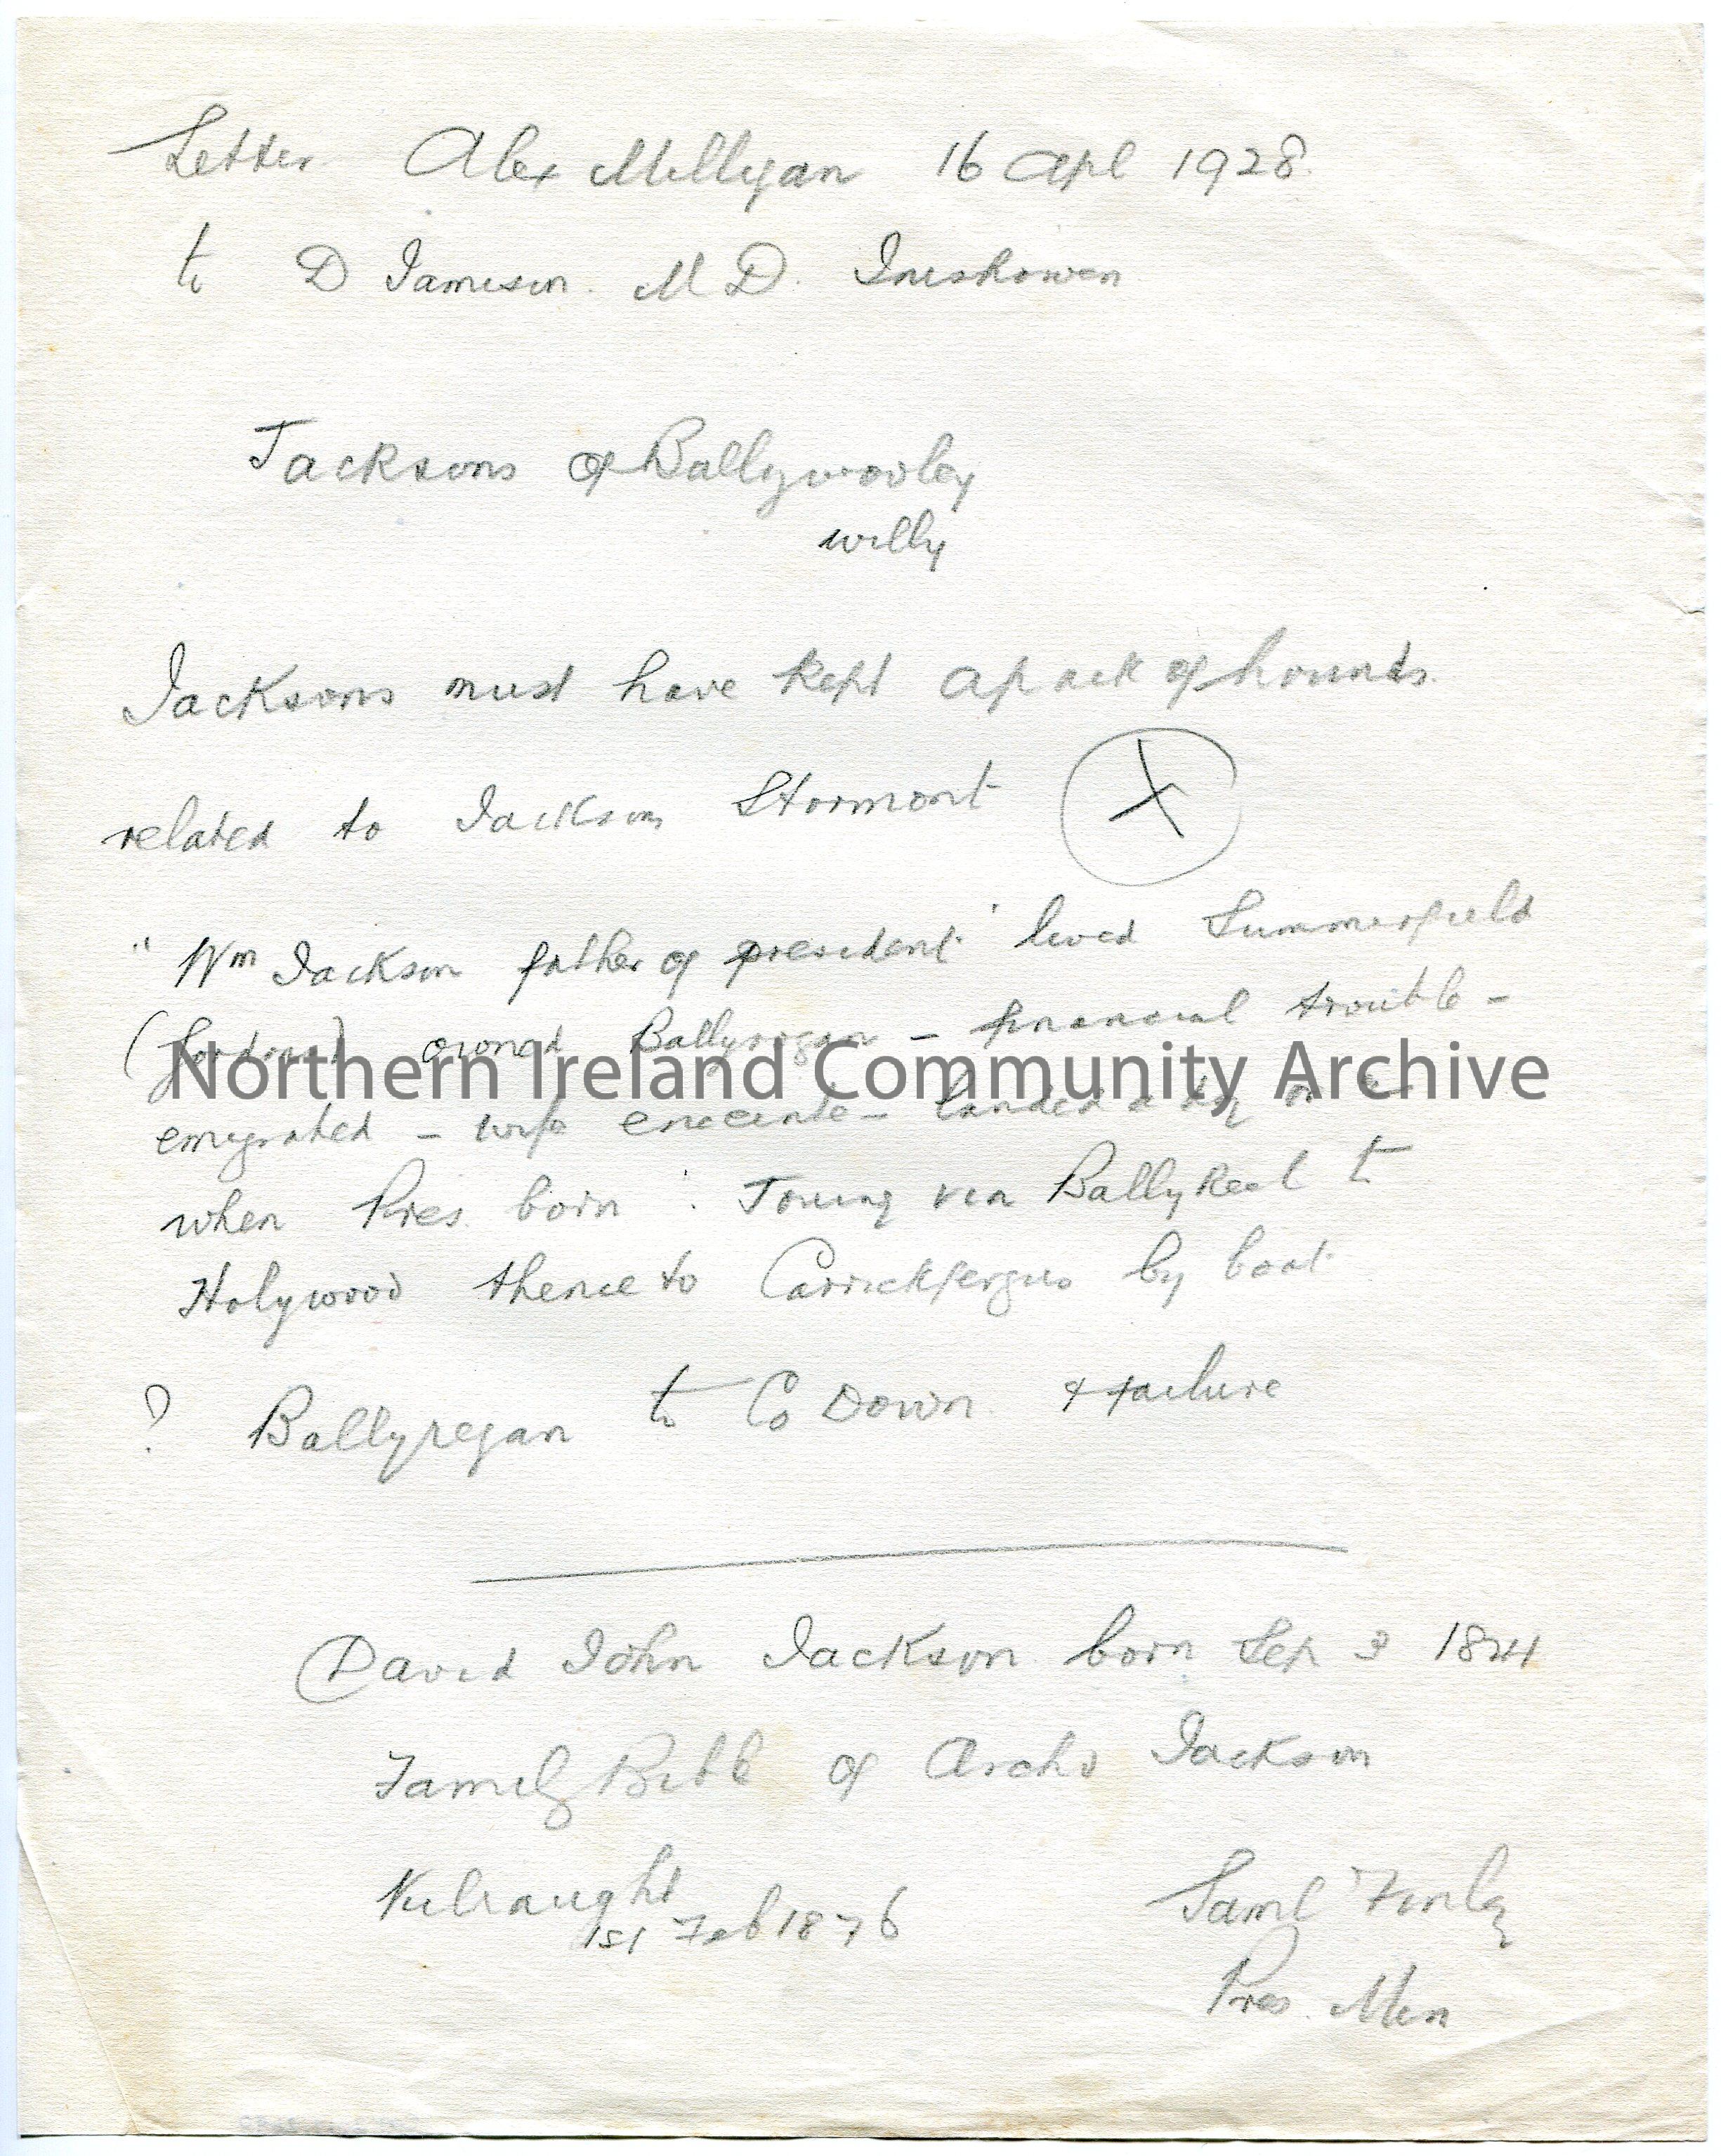 Letter Alex Milligan 16 Apl 1928
to D Jameson. M D. Inishowen
Jacksons of Ballywooley
willy
Jacksons must have kept a pack of hounds.
related to Jackson Stormont X
"Wm Jackson father of president" lived Summerfield
( ) owned Ballyrogan – financial trouble –
Northern Ireland Community Archive
emigrated – wife enceinte – landed a day or
when Pres. born". via BallyKeel to
Holywood thence to Carrickfergus by boat.
? Ballyregan to Co Down & failure
David John Jackson born Sep 3
Family Bible of Archd Jackson
Kilraught
1st Feb 1876
Saml Finlay
Pres. Min